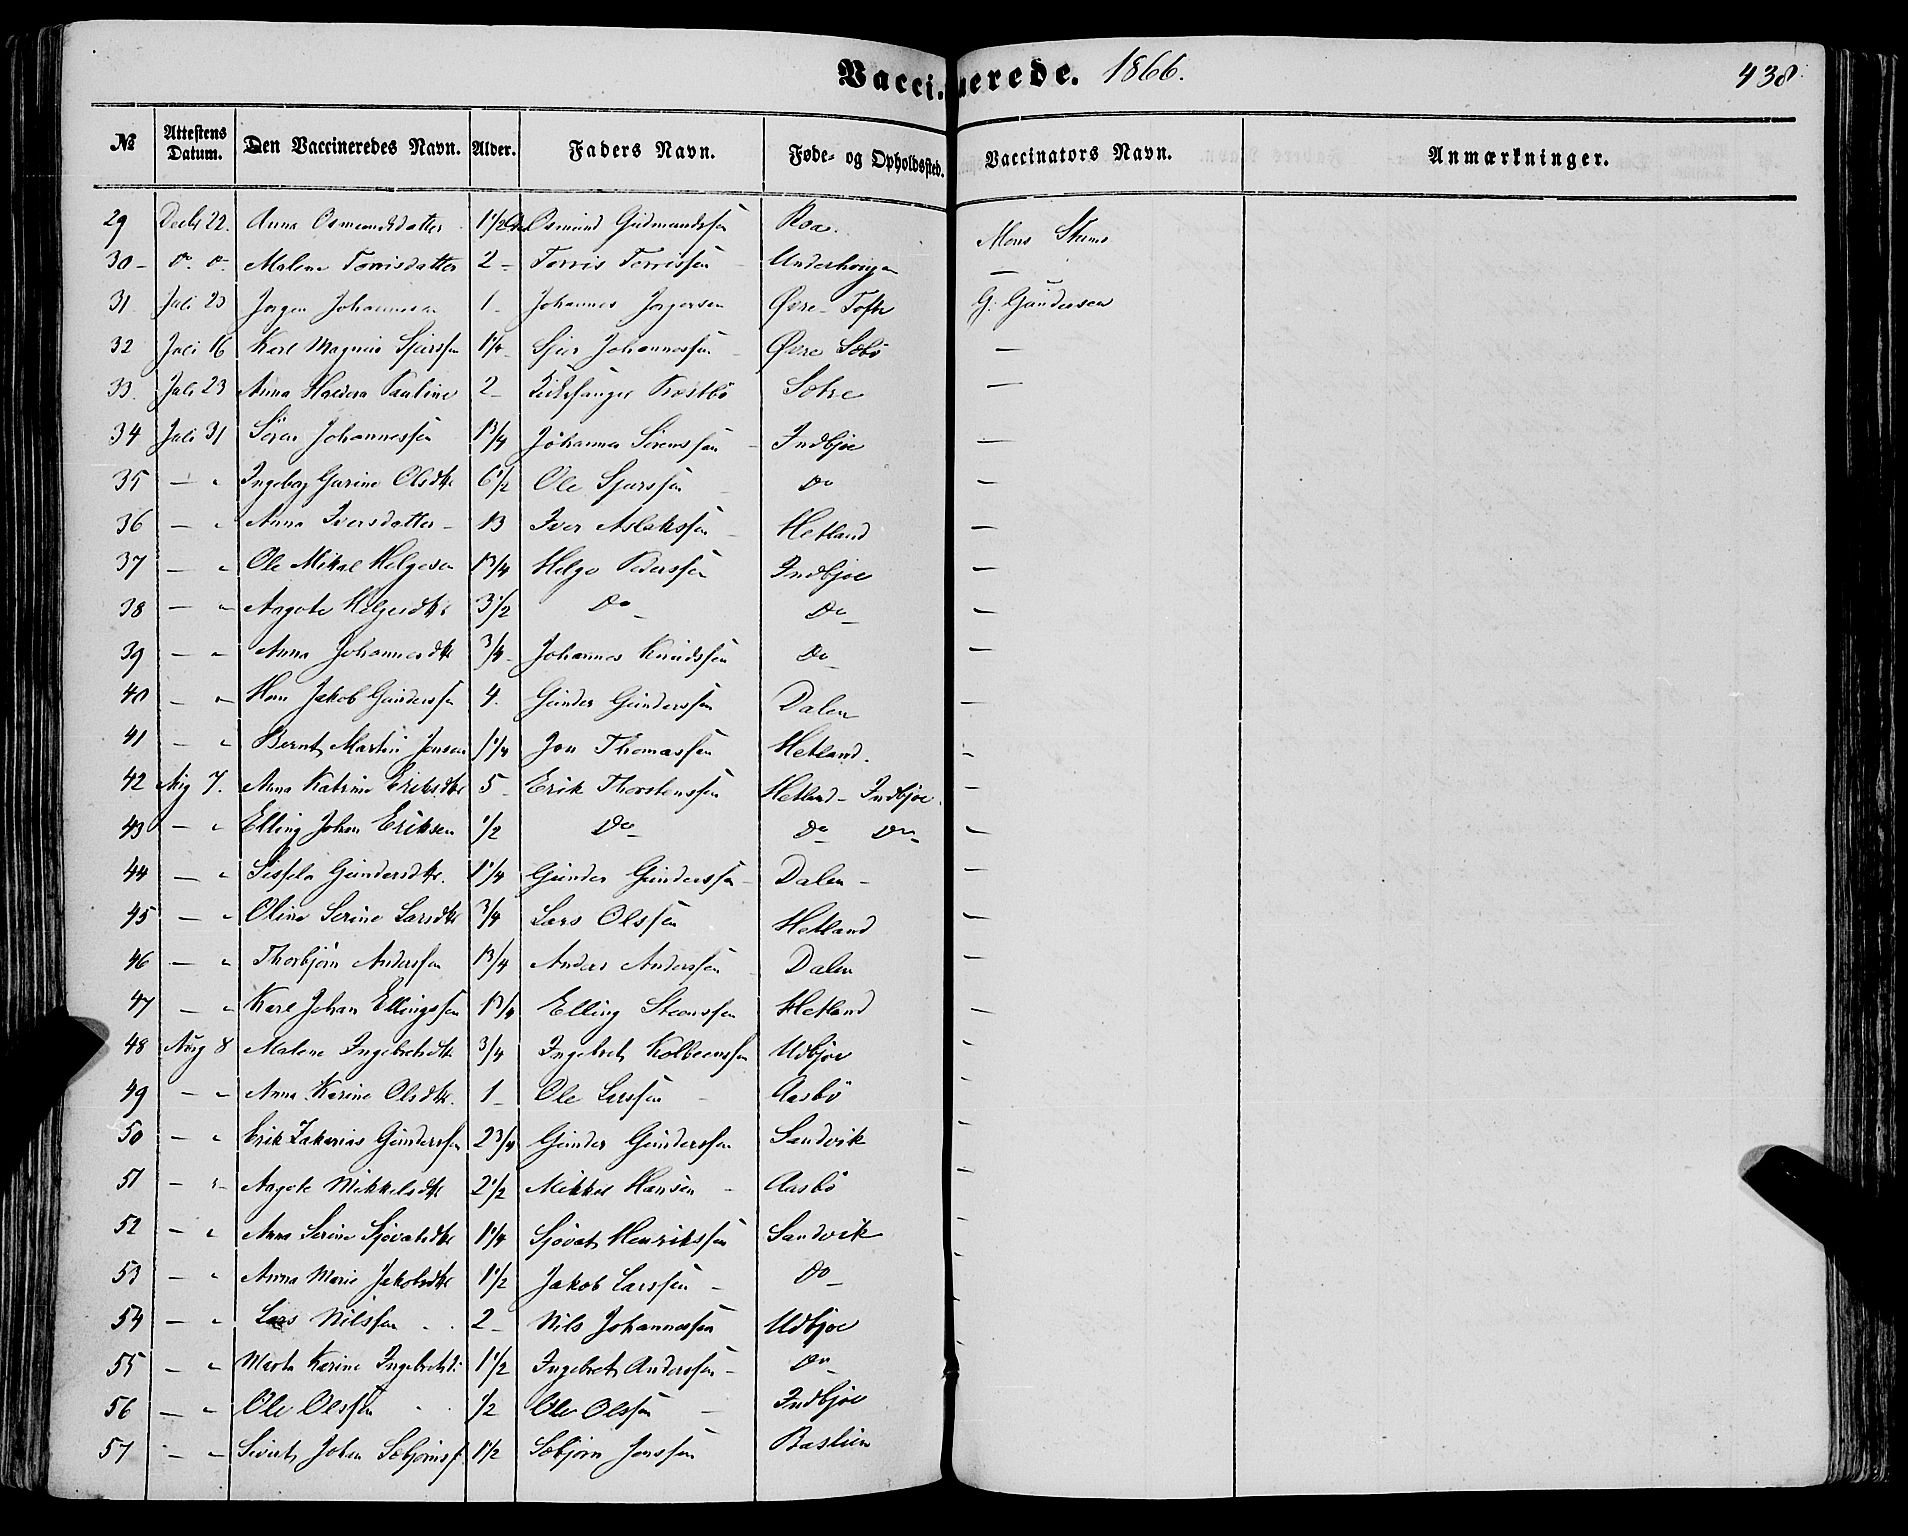 Vaccinerede. 1866. 438
№ Attestens Datum. Den Vaccineredes Navn. Alder. Faders Navn. Føde- og Opholdssted. Vaccinators Navn. Anmærkninger.
29 Decbr 22. Anna Osmundsdatter 1 1/2 Osmund Gudmundssen Roa. Mons
30 - do. do. Malene Torrisdatter 2 - Torris Torrissen -
31 Juli 23 Jørgen Johannesen 1 - Johannes Jørgensen Øvre - Tofte G. Gundersen
32 Juli 16 Karl Magnus Sjursen 1 1/4 - Sjur Johannessen - Øvre Sæbö -
33. Juli 23 Anna Pauline 2 - Sokse -
34 Juli 31 Sören Johannessen 1 3/4 Johannes Sörenssen - Indbjoe -
35 - " Ingeborg Gurine Olsdtr 6 1/2 Ole Sjurssen - Do -
36 - " Anna Iversdatter - 13 Iver Aslakssen - Hetland -
37 - " Ole Mikal Helgesen 1 3/4 Helge Pederssen Indbjoe -
38 - " Aagote Helgesdtr 3 1/2 Do - Do - -
39 - " Anna Johannesdtr 3/4 - Johannes Knudssen Do - -
40 - " Hans Jakob Gunderssen 4. Gunder Gunderssen Dalen -
41 - " Bernt Martin Jonsen 1 1/4 Jon Thomassen Hetland. -
42 Aug 7. Anna Katrine Eriksdtr 5 - Erik Thorstenssen Hetland - Indbjoe. -
43 - " Elling Johan Eriksen 1/2 Do - Do - Do - -
44 - " Sissela Gundersdtr. 1 1/4 Gunder Gunderssen - Dalen - -
45 - " Oline Serine Larsdtr 3/4 Lars Olssen Hetland -
46 - " Thorbjörn Anderssen 1 3/4 Anders Anderssen - Dalen -
47 - " Karl Johan Ellingssen 1 3/4 Elling Steenssen Hetland -
48 Aug 8 Malene Ingebretsdtr 3/4 Ingebret Kolbeenssen Udbjoe -
49 - " Anna Karine Olsdtr. 1 - Ole Larssen - Aasbö -
50 - " Erik Zakarias Gunderssen 2 3/4 Gunder Gunderssen Sandvik -
51 - " Aagote Mikkelsdtr 2 1/2 Mikkel Hansen - Aasbö -
52 - " Anna Serine Sjovatsdtr 1 1/4 Sjovat Henrikssen Sandvik -
53 - " Anna Marie Jakobsdtr 1 1/2 Jakob Larssen - Do - -
54 - " Lars Nilssen 2 - Nils Johannessen Udbjoe -
55 - " Marta Karine Ingebretsd: 1 1/2 Ingebret Anderssen - Do - -
56 - " Ole Olssen 1/2 Ole Olssen - Indbjoe
57 - " Sivert Johan Sæbjörnss. 1 1/2 Sæbjörn Jonssen Baslien